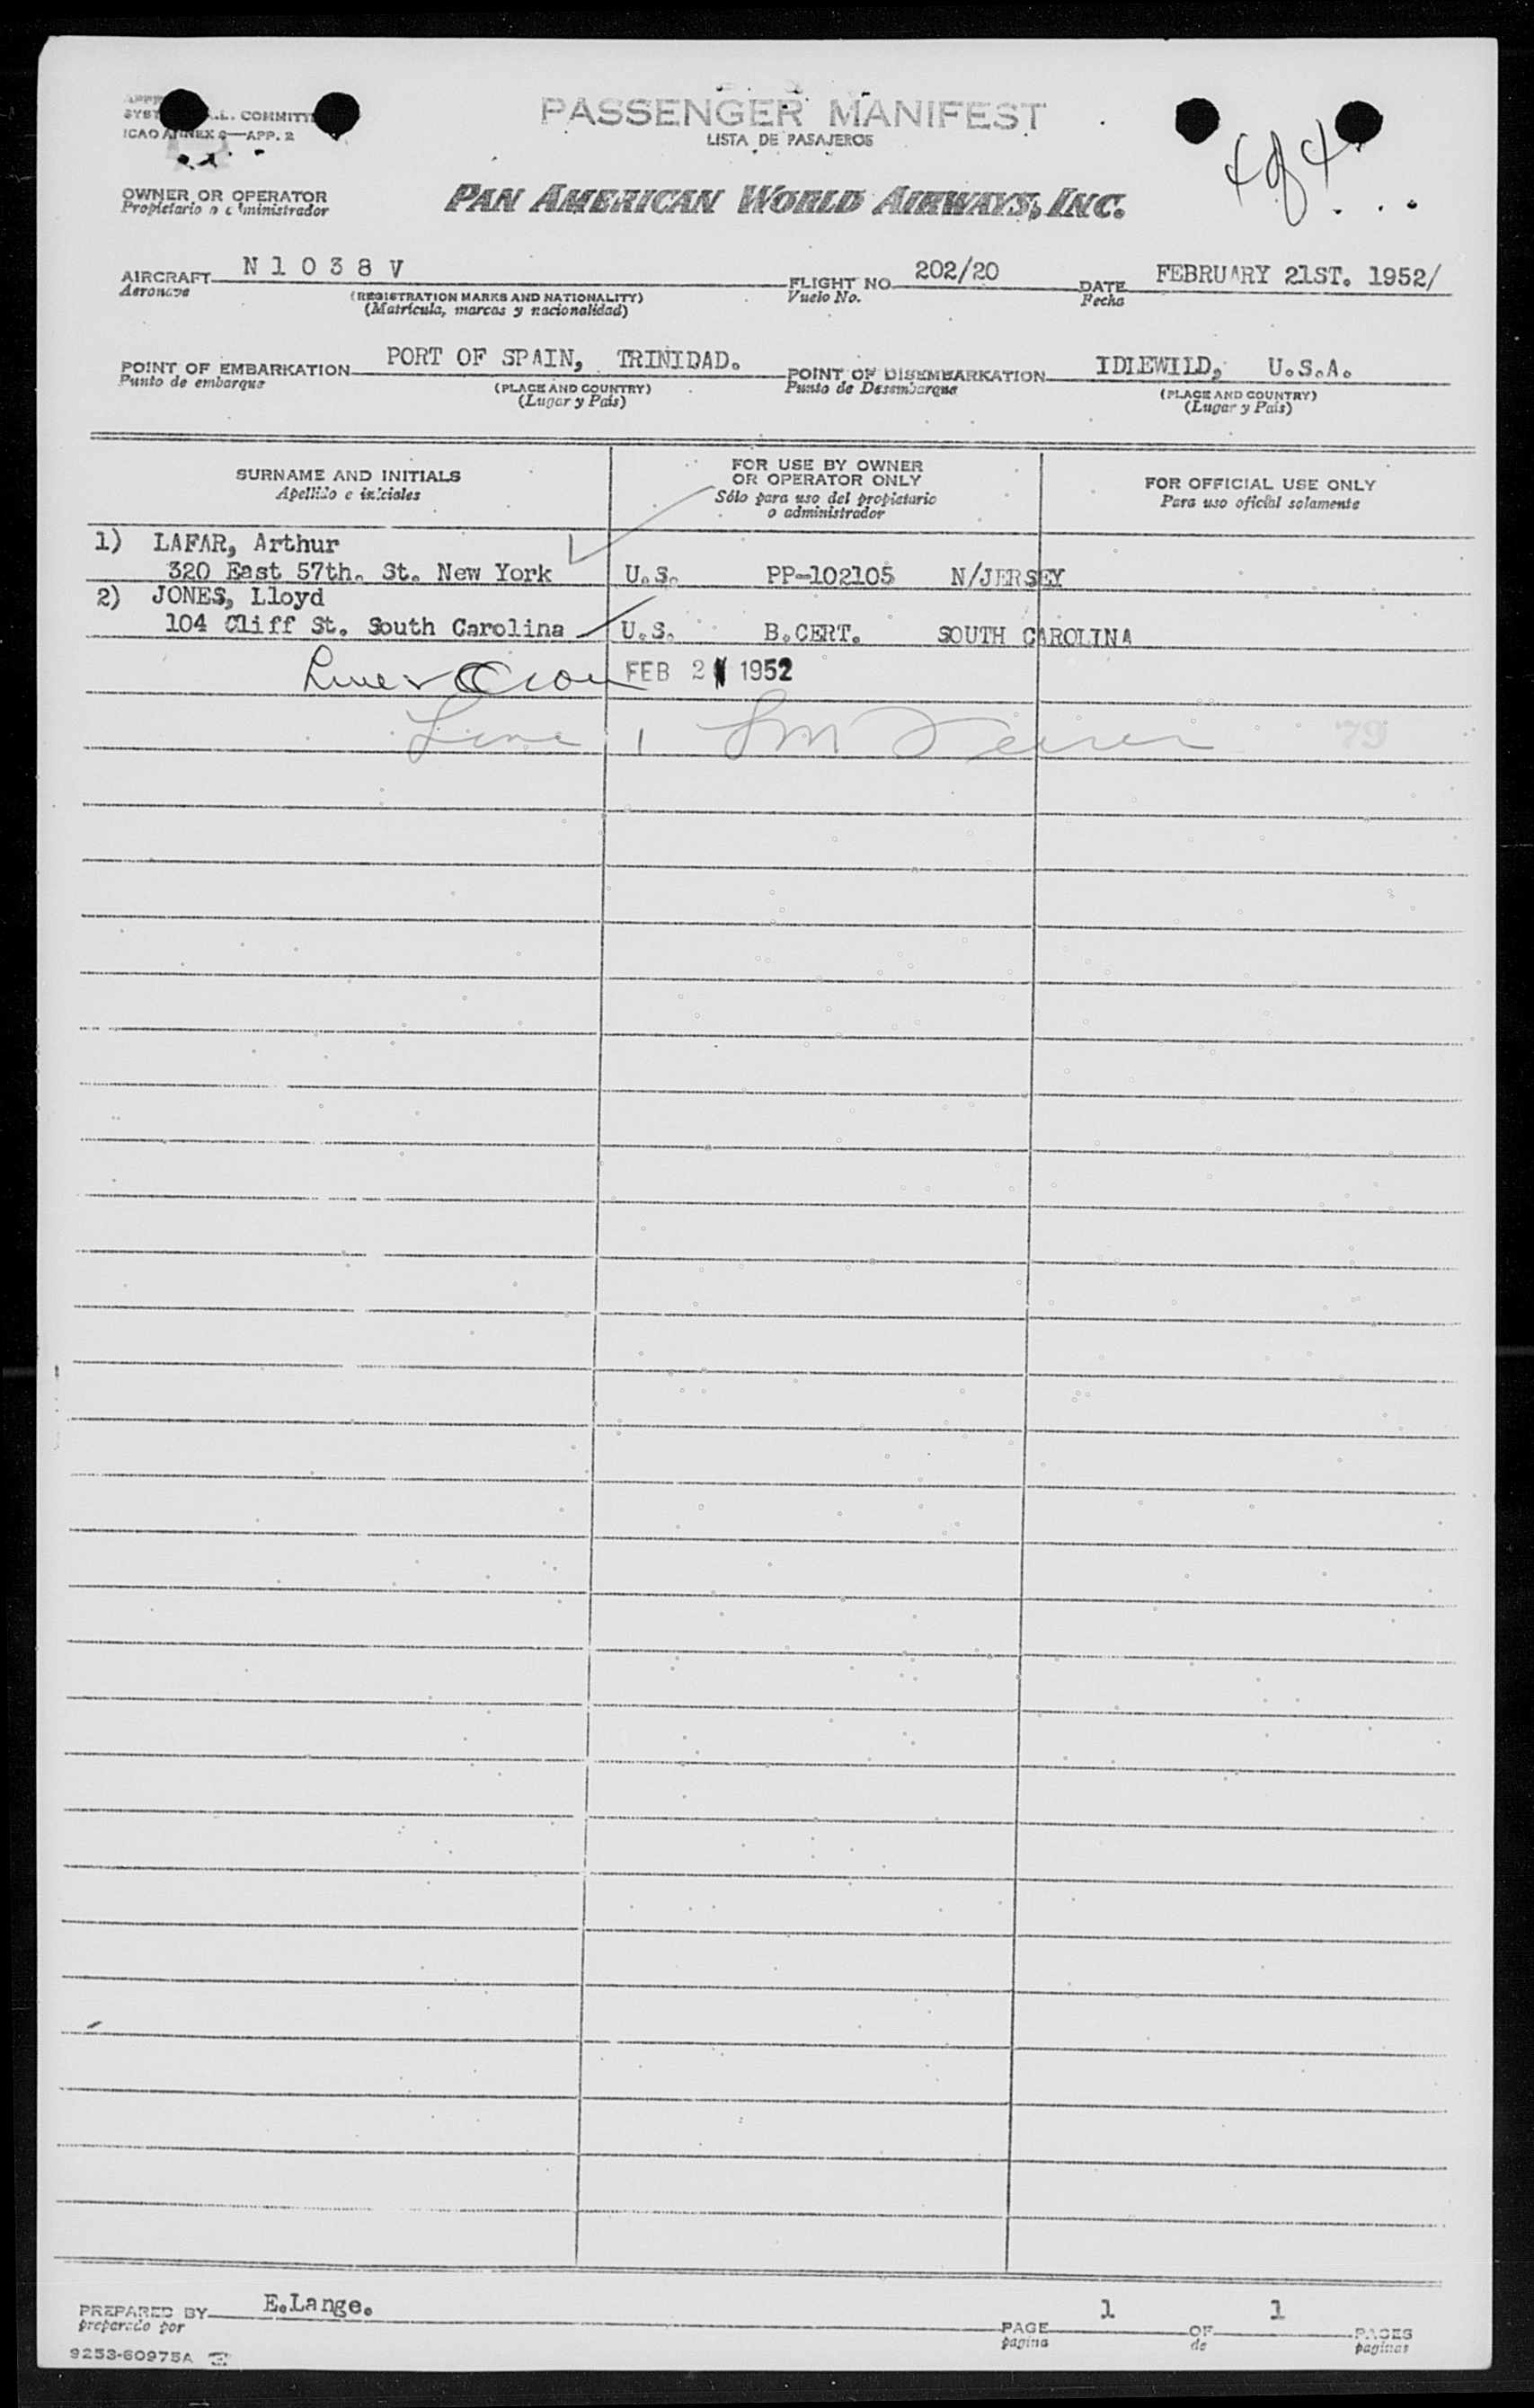 PASSENGER MANIFEST
LISTA DE PASAJEROS
COMMITT
ICAO ANNEX 9—APP. 2
4 of 4
OWNER OR OPERATOR
Propietario o administrador
PAN AMERICAN WORLD AIRWAYS, INC.
AIRCRAFT N 1 0 3 8 V FLIGHT NO. 202/20 DATE FEBRUARY 21ST. 1952/
Aeronave (REGISTRATION MARKS AND NATIONALITY) Vuelo No. Fecha
(Matrícula, marcas y nacionalidad)
POINT OF EMBARKATION PORT OF SPAIN, TRINIDAD. POINT OF DISEMBARKATION IDLEWILD, U.S.A.
Punto de embarque (PLACE AND COUNTRY) Punto de Desembarque (PLACE AND COUNTRY)
(Lugar y País) (Lugar y País)
SURNAME AND INITIALS
Apellido e iniciales
FOR USE BY OWNER
OR OPERATOR ONLY
Sólo para uso del propietario
o administrador
FOR OFFICIAL USE ONLY
Para uso oficial solamente
1) LAFAR, Arthur
320 East 57th. St. New York U.S. PP-102105 N/JERSEY
2) JONES, Lloyd
104 Cliff St. South Carolina U.S. B.CERT. SOUTH CAROLINA
FEB 21 1952
Line 1
79
PREPARED BY E.Lange. PAGE 1 OF 1 PAGES
preparado por pagina de paginas
9253-60975A